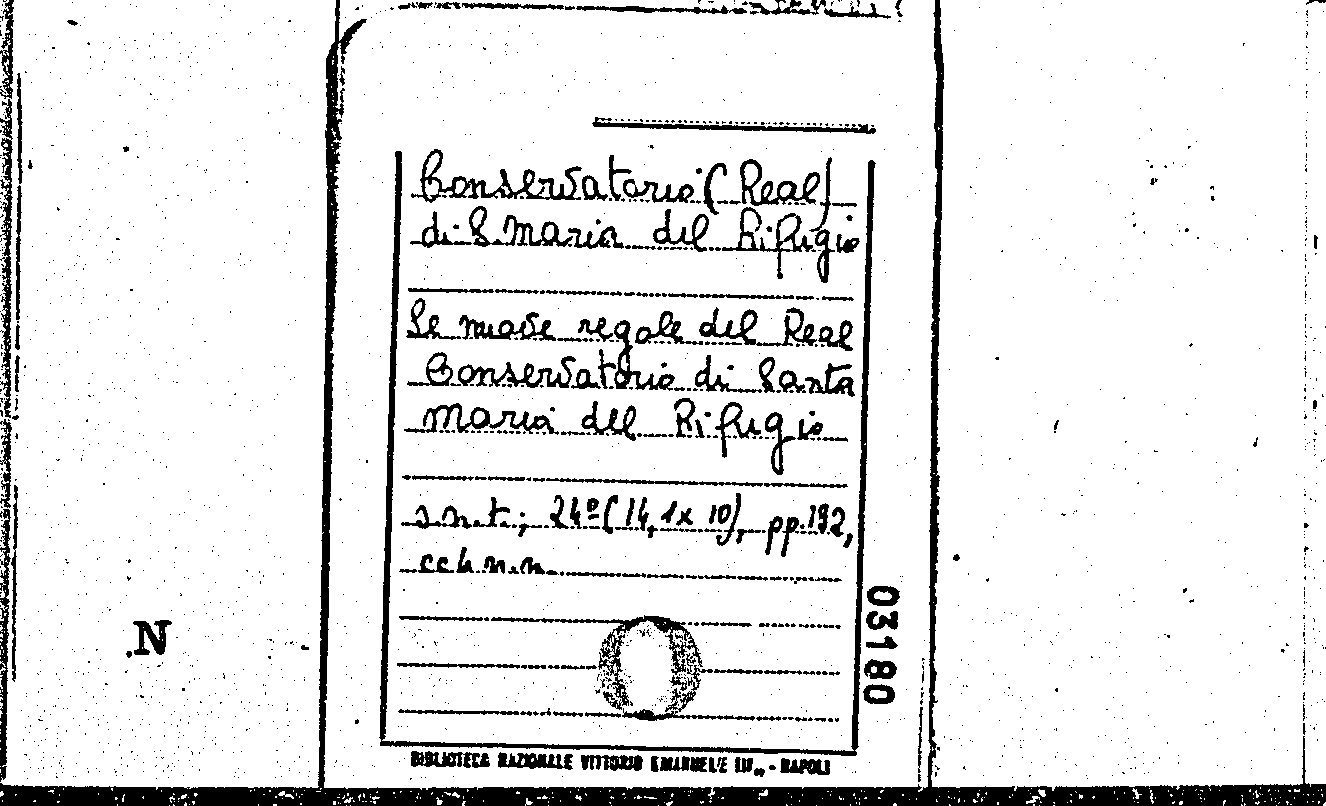 Conservatorio (Real)
di S. Maria del Rifugio
Le nuove regole del Real
Conservatorio di Santa
Maria del Rifugio
s.n.t.; 24º (14,1x10), pp. 192,
cc 4 n.n.
03180
N
BIBLIOTECA NAZIONALE VITTORIO EMANUELE III„ - NAPOLI